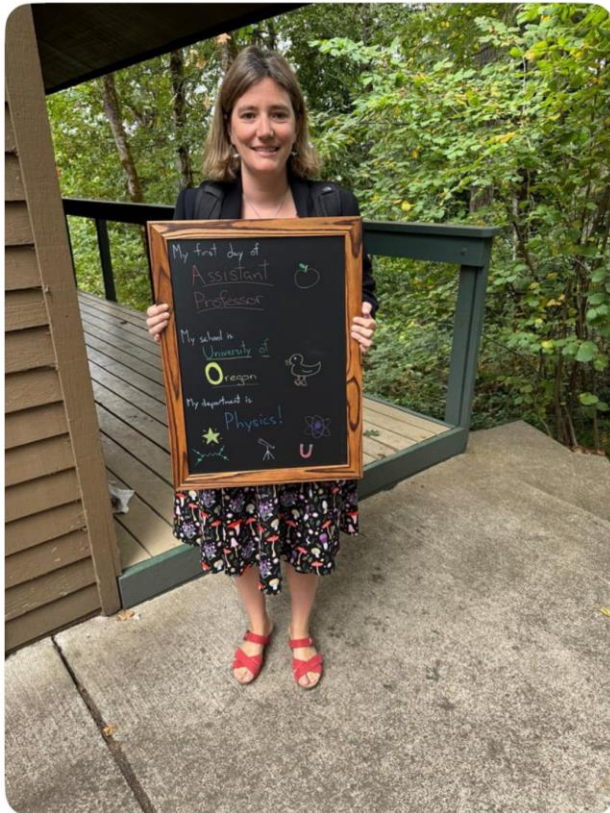 My first day of
Assistant
Professor
My school is
University of
Oregon
My department is
Physics!